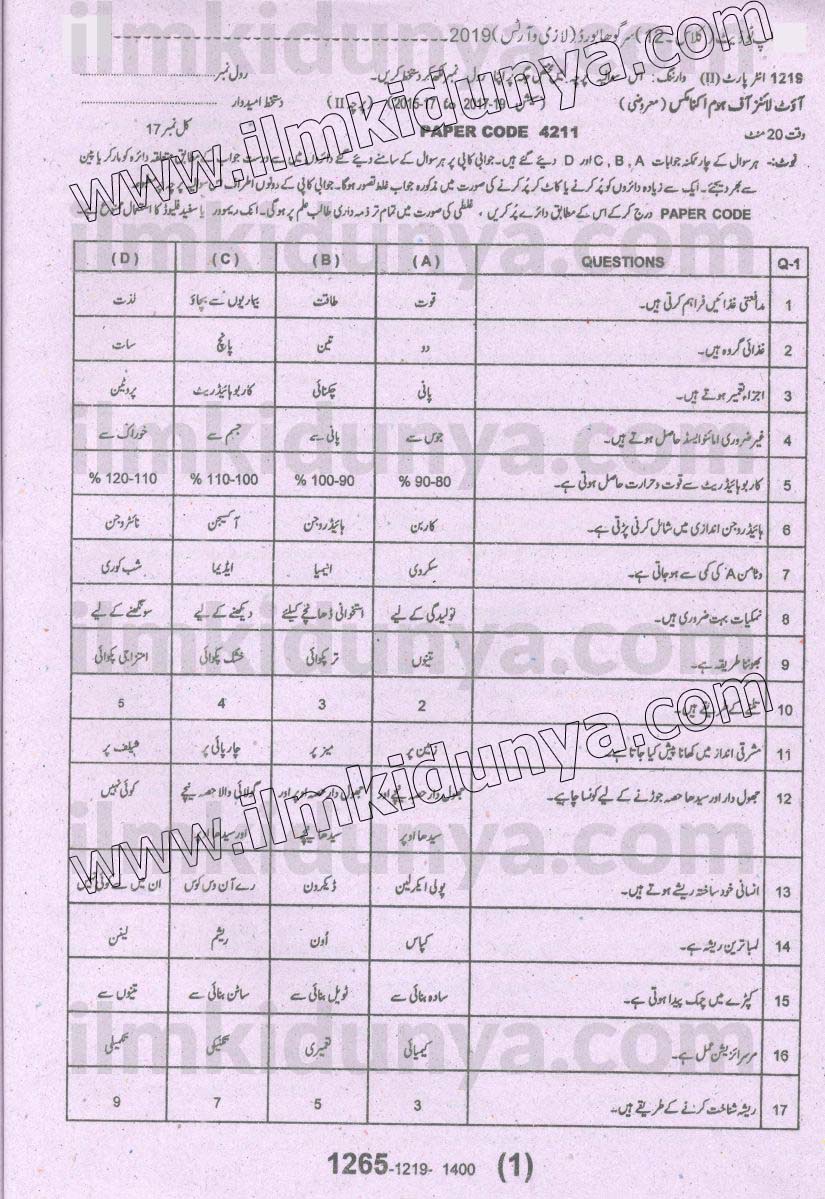 www.ilmkidunya.com
سرگودھا بورڈ (لازمی و آرٹس) 2019
1219 انٹر پارٹ (II) وارننگ: پر اپنا نمبر لکھ کر دستخط کریں۔ رول نمبر
آؤٹ لائنز آف ہوم اکنامکس (معروضی) 2017-19 to 2015-17) (پرچہ II) دستخط امیدوار
وقت 20 منٹ PAPER CODE 4211 کل نمبر 17
نوٹ:- ہر سوال کے چار ممکنہ جوابات A , B , C اور D دیئے گئے ہیں۔ جوابی کاپی پر ہر سوال کے سامنے دیئے گئے دائروں میں سے درست جواب کے مطابق متعلقہ دائرہ کو مارکر یا پین
سے بھر دیجئے۔ ایک سے زیادہ دائروں کو پُر کرنے یا کاٹ کر پُر کرنے کی صورت میں مذکورہ جواب غلط تصور ہوگا۔ جوابی کاپی کے دونوں اطراف
PAPER CODE درج کر کے اس کے مطابق دائرے پُر کریں ، غلطی کی صورت میں تمام تر ذمہ داری طالب علم پر ہوگی۔ انک ریموور یا سفید فلیوڈ کا استعمال
Q-1 QUESTIONS (A) (B) (C) (D)
1 مدافعتی غذائیں فراہم کرتی ہیں۔ قوت طاقت بیماریوں سے بچاؤ لذت
2 غذائی گروہ ہیں۔ دو تین پانچ سات
3 اجزاء تعمیر ہوتے ہیں۔ پانی چکنائی کاربوہائیڈریٹ پروٹین
4 غیر ضروری امائنو ایسڈ حاصل ہوتے ہیں۔ جوس سے پانی سے جسم سے خوراک سے
5 کاربوہائیڈریٹ سے قوت و حرارت حاصل ہوتی ہے۔ 80-90 % 90-100 % 100-110 % 110-120 %
6 ہائیڈروجن اندازی میں شامل کرنی پڑتی ہے۔ کاربن ہائیڈروجن آکسیجن نائٹروجن
7 وٹامن A کی کمی سے ہو جاتی ہے۔ سکروی انیمیا ایڈیما شب کوری
8 نمکیات بہت ضروری ہیں۔ تولیدگی کے لیے استخوانی ڈھانچے کیلئے دیکھنے کے لیے سونگھنے کے لیے
9 بھوننا طریقہ ہے۔ تینوں تر پکوائی خشک پکوائی امتزاجی پکوائی
10 تلنے کے طریقے ہیں۔ 2 3 4 5
11 مشرقی انداز میں کھانا پیش کیا جاتا ہے۔ زمین پر میز پر چارپائی پر شیلف پر
12 جھول دار اور سیدھا حصہ جوڑنے کے لیے کونسا چاہیے۔ جھول دار حصہ نیچے اور جھول دار حصہ اوپر اور گولائی والا حصہ نیچے کوئی نہیں
سیدھا اوپر سیدھا نیچے اور سیدھا
13 انسانی خود ساختہ ریشے ہوتے ہیں۔ پولی ایکرلین ڈیکرون رے آن وس کوس ان میں سے کوئی نہیں
14 لمبا ترین ریشہ ہے۔ کپاس اُون ریشم لینن
15 کپڑے میں چمک پیدا ہوتی ہے۔ سادہ بنائی سے ٹویل بنائی سے ساٹن بنائی سے تینوں سے
16 مرسرائزیشن عمل ہے۔ کیمیائی تعمیری تکنیکی تکمیلی
17 ریشہ شناخت کرنے کے طریقے ہیں۔ 3 5 7 9
www.ilmkidunya.com
1265-1219- 1400 (1)